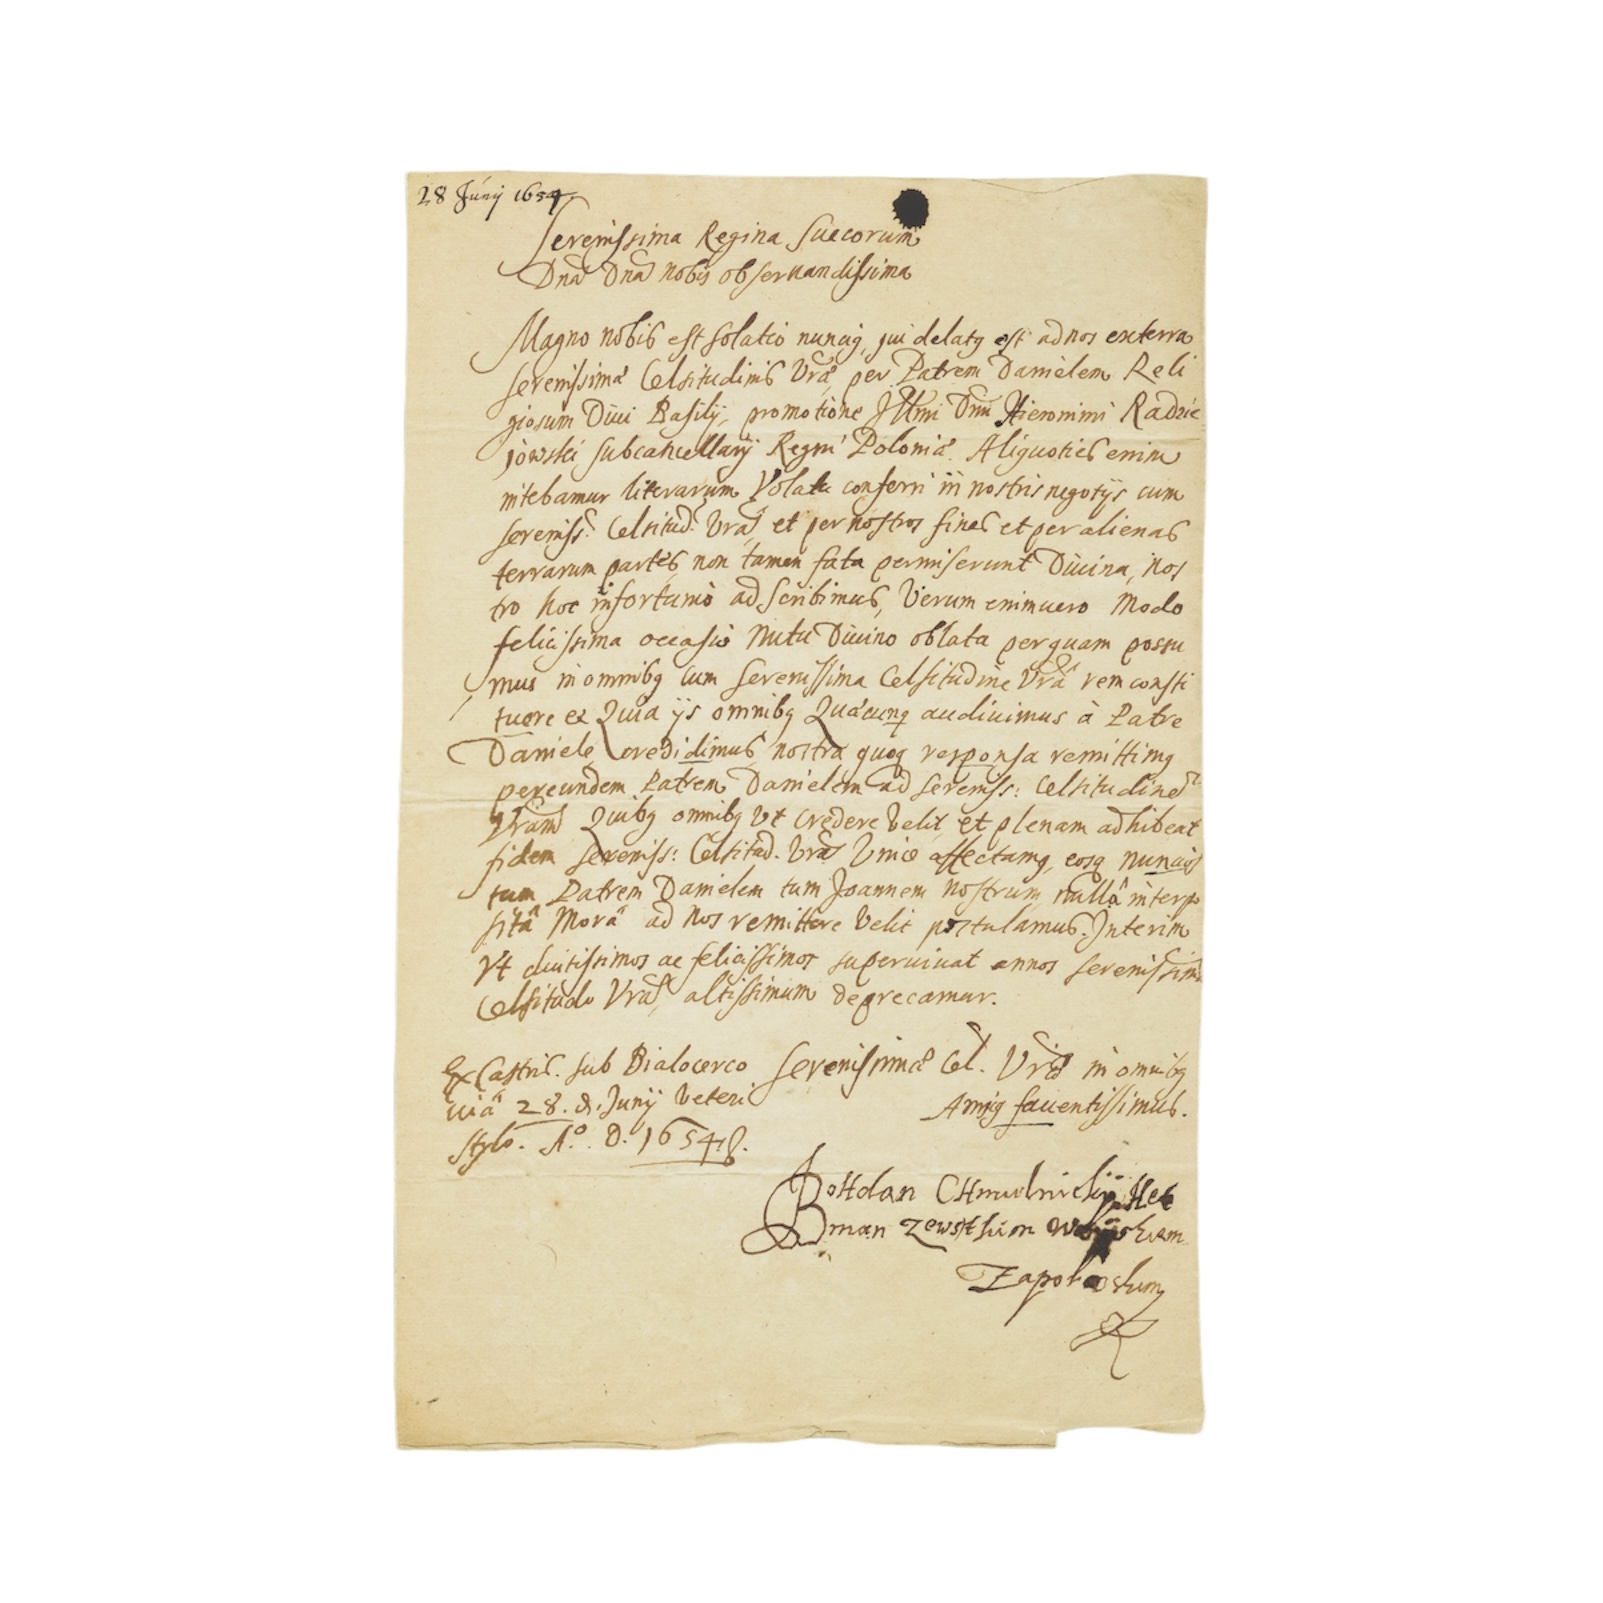 28 Junij 1654
Serenissima Regina Suecorum
Dna Dna nobis obseruandissima
Magno nobis est solatio nuncius, qui delatus est ad nos ex terra
Serenissimæ Celsitudinis Vræ, per Patrem Danielem Reli
giosum Diui Basilij, promotione Illmi Dni Hieronimi Radzie
iowski Subcancellarij Regni Poloniæ. Aliquoties enim
nitebamur literarum Volatu conferri in nostris negotijs cum
Sereniss: Celsitud: Vra, et per nostros fines et per alienas
terrarum partes, non tamen fata permiserunt Diuina, nos
tro hoc infortunio adscribimus, Verum enimuero Modo
felicissima occasio Nutu Diuino oblata perquam possu
mus in omnibq cum Serenissima Celsitudine Vra rem consti
tuere et Quia ijs omnibq Quæcunq audiuimus à Patre
Daniele credidimus, nostra quoq responsa remittimq
per eundem Patrem Danielem ad Sereniss: Celsitudine
Vram Quibq omnibq Vt credere Velit, et plenam adhibeat
fidem Sereniss: Celsitud. Vra Vnice affectamq, eosq nuncios
tum Patrem Danielem tum Joannem nostrum, nullâ interpo
sitâ Morâ ad Nos remittere Velit postulamus. Interim
Vt diutissimos ac felicissimos superuiuat annos Serenissima
Celsitudo Vra, altissimum deprecamur.
Ex Castris. sub Bialocerco
uiâ 28. d. Junij Veteri
Stylo. A.o D. 1654.
Serenissimæ Cel. Vræ in omnibq
Amicq fauentissimus.
Bohdan Chmielnickij Het
man Zewsithim Woiskiem
Zaporoskim